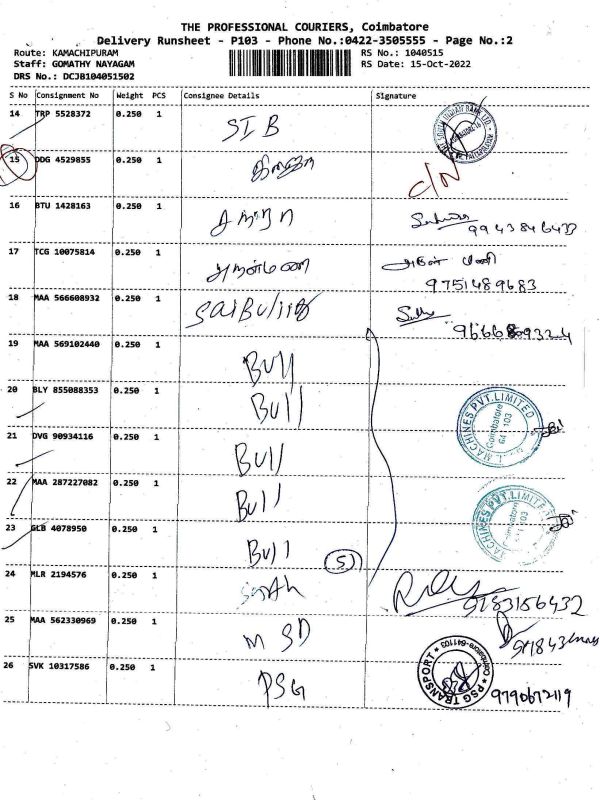 THE PROFESSIONAL COURIERS, Coimbatore
Delivery Runsheet - P103 - Phone No.:0422-3505555 - Page No.:2
Route: KAMACHIPURAM RS No.: 1040515
Staff: GOMATHY NAYAGAM RS Date: 15-Oct-2022
DRS No.: DCJB104051502
S No Consignment No Weight PCS Consignee Details Signature
14 TRP 5528372 0.250 1 SIB
15 DDG 4529855 0.250 1 C/N
16 BTU 1428163 0.250 1
17 TCG 10075814 0.250 1 அருள்மணி அருள் மணி
9751489683
18 MAA 566608932 0.250 1
19 MAA 569102440 0.250 1 Bull
20 BLY 855088353 0.250 1 Bull
21 DVG 90934116 0.250 1 Bull
22 MAA 287227082 0.250 1 Bull
23 GLB 4078950 0.250 1 Bull
5)
24 MLR 2194576 0.250 1
9183156432
25 MAA 562330969 0.250 1 M SD
26 SVK 10317586 0.250 1 PSG PSG TRANSPORT 9790672119